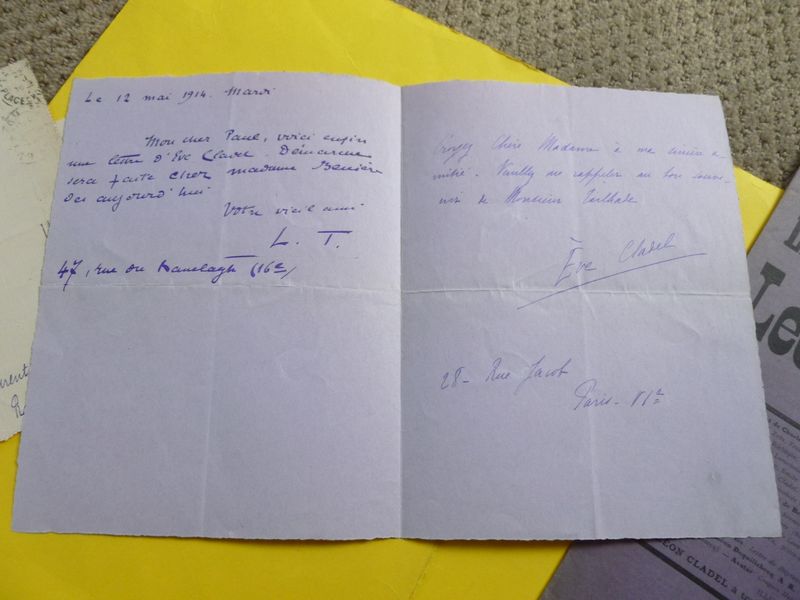 Le 12 mai 1914. Mardi
Mon cher Paul, voici enfin
une lettre d'Ève Cladel. Démarche
sera faite chez madame
dès aujourd'hui
Votre vieil ami
L. T.
47, rue du Ranelagh (16e)
Croyez Chère Madame à ma sincère a-
mitié. Veuillez me rappeler au bon souve-
nir de Monsieur Tailhade
Ève Cladel
28 - Rue Jacob
Paris - VIe
PLACE
Le
LÉON CLADEL à